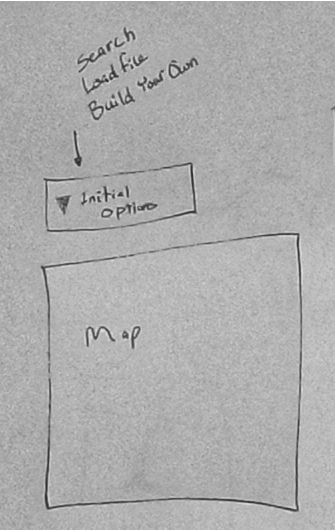 Search
Load file
Build Your Own
Initial
options
Map